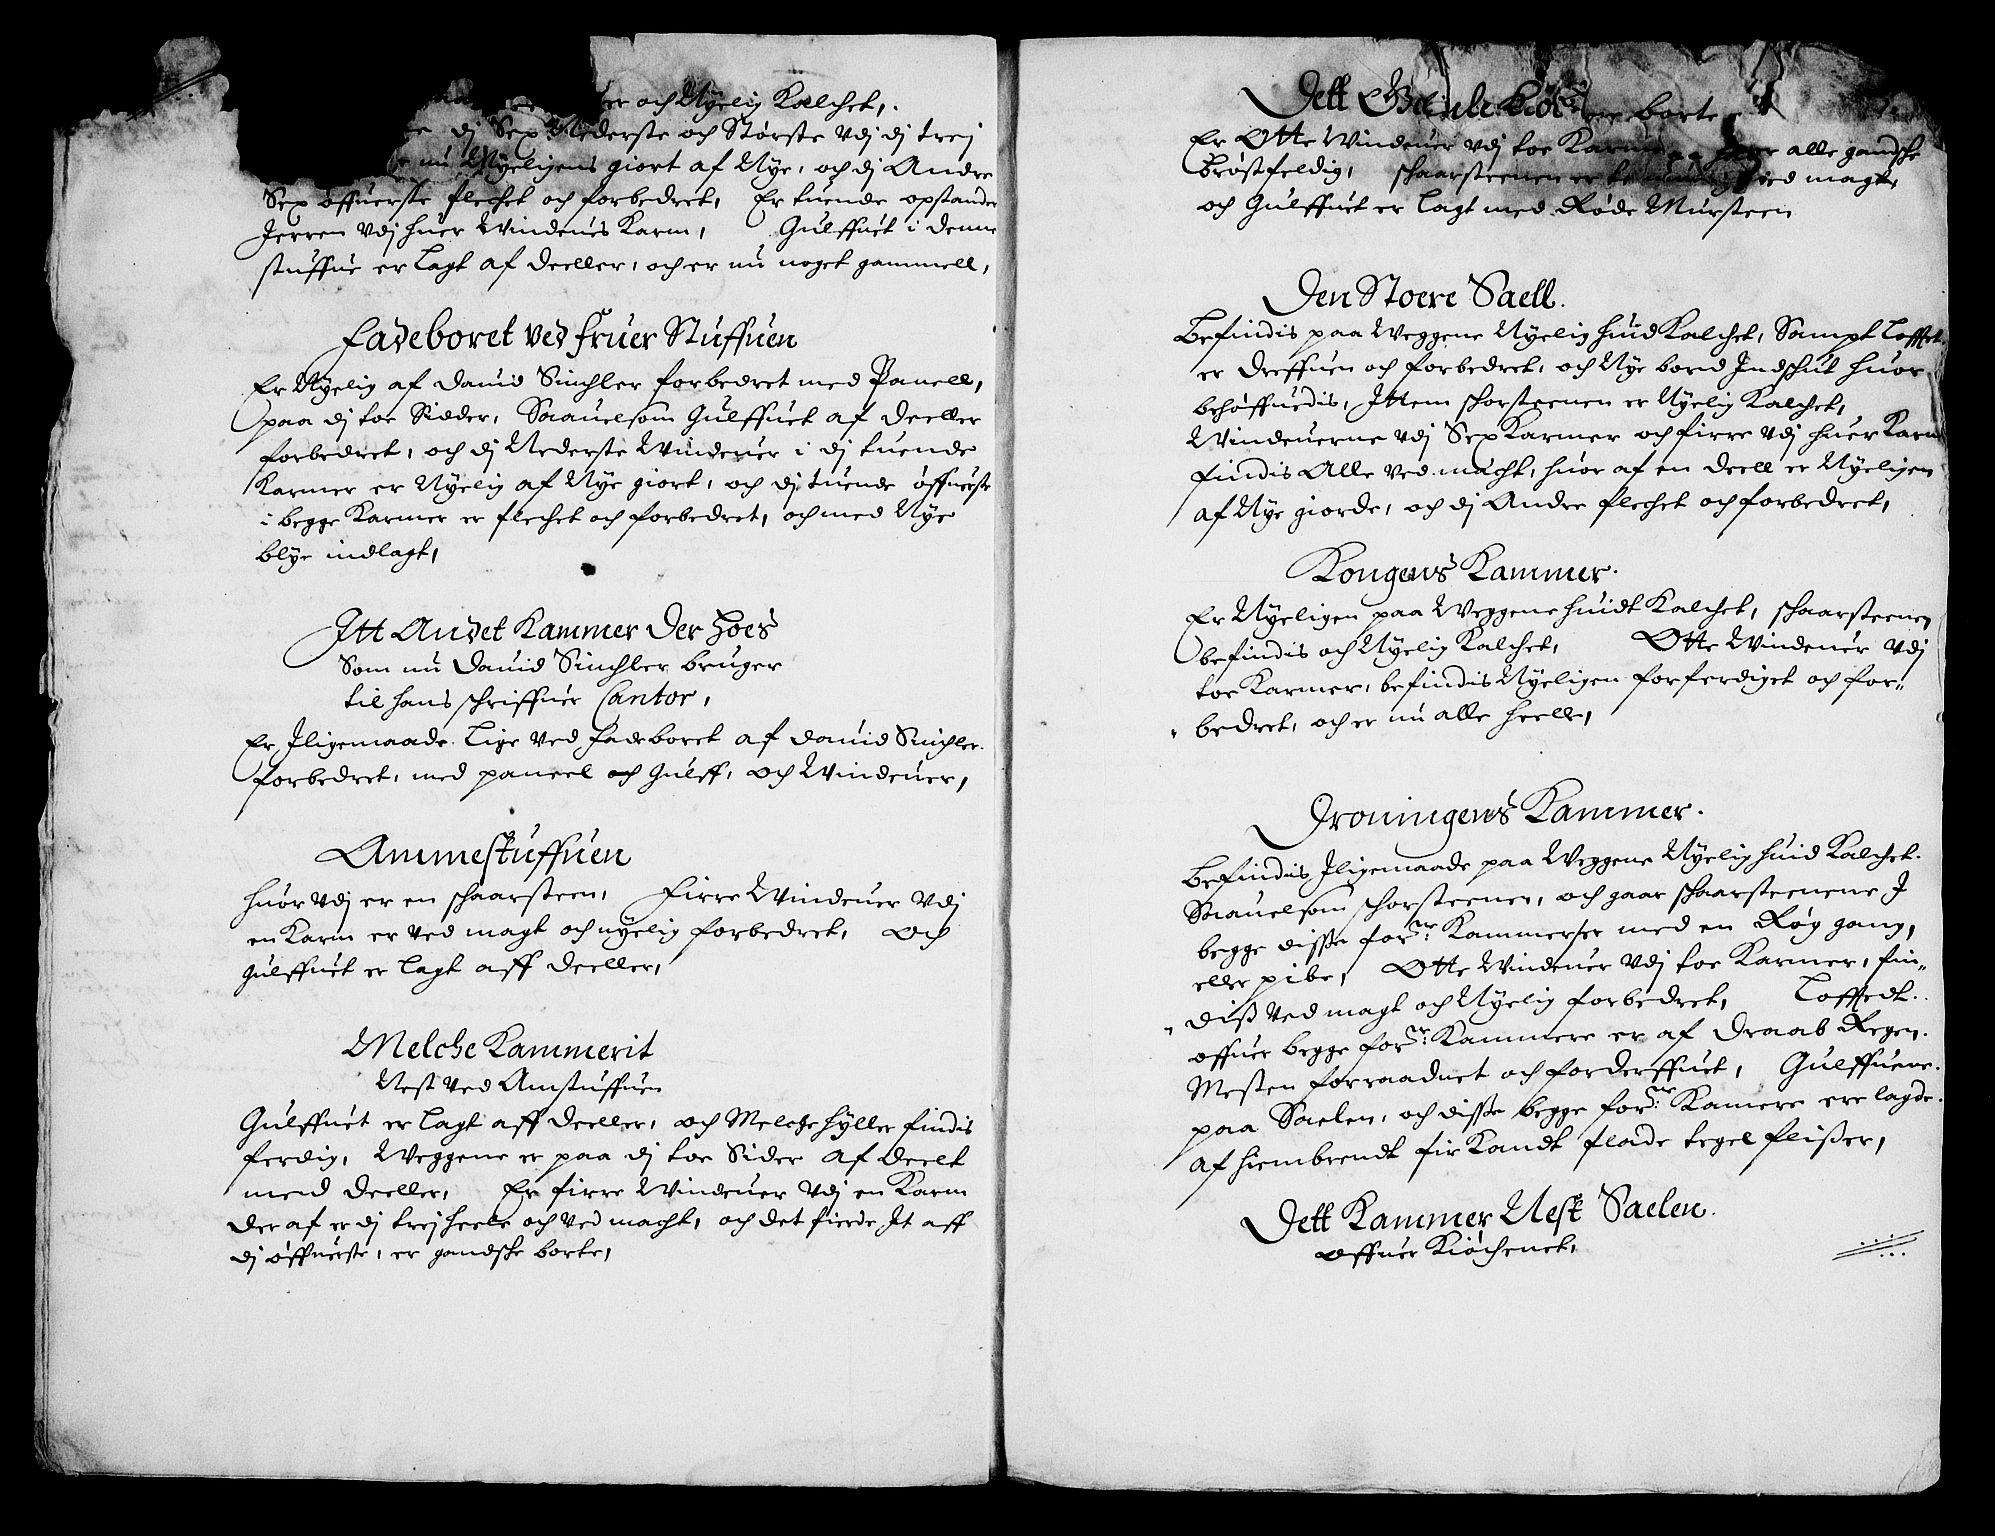 och Nyelig Kalchet,
dj Sex Nederste och Største vdj dj trej
nu Nyeligens giort af Nye, och dj Andre
Sex øffuerste flechet och forbedret, Er tuende opstander
Jerren vdj huer Windeues Karm, Gulffuet i denne
stuffue er lagt af deeller, och er nu noget gammell,
Fadeboret ved Fruer Stuffuen
Er Nyelig af Dauid Sinchler forbedret med Panell,
paa dj toe Sidder, Saauelsom Gulffuet af deeller
forbedret, och dj Nederste Windeuer i dj tuende
Karmer er Nyelig af Nye giort, och dj tuende øffuerste
i begge Karmer er flechet och forbedret, och med Nye
blye indlagt,
Itt Andet Kammer Der hoes
Som nu Dauid Sinchler bruger
til hans schriffuer Cantor,
Er Iligemaade Lige ved Fadeboret af Dauid Sinchler
forbedret, med paneel och Gulff, och Windeuer,
Ammestuffuen
huor vdj er en schaarsteen, Firre Windeuer vdj
en Karm er ved magt och nyelig forbedret, Och
Gulffuet er lagt aff deeller,
Melche Kammerit
Nest ved Amstuffuen
Gulffuet er lagt aff deeller, och Melche hyller findis
ferdig, Weggene er paa dj toe Sider af deelt
med deeller, Er firre Windeuer vdj en Karm
der af er dj trej heele och ved macht, och det fierde It aff
dj øffuerste, er gandsche borte,
Dett borte
Er Otte Windeuer vdj toe alle gandsche
brøstfeldig, schaarsteenen er ved magt,
och Gulffuet er lagt med Røde Mursteen
Den Stoere Saell.
Befindis paa Weggene Nyelig huid Kalchet, Sampt Lofftet
er dreffuen och forbedret, och Nye bord Indschut huor
behøffuedis, Ittem schorsteenen er Nyelig Kalchet,
Windeuerne vdj Sex Karmer och firre vdj huer Karm
findis Alle ved macht, huor af en deell er Nyeligen
af Nye giorde, och dj Andre flechet och forbedret,
Kongens Kammer.
Er Nyeligen paa Weggene huidt Kalchet, schaarsteenen
befindis och Nyelig Kalchet, Otte Windeuer vdj
toe Karmer, befindis Nyeligen forferdiget och for-
bedret, och er nu alle heelle,
Droningens Kammer.
Befindis Iligemaade paa Weggene Nyelig huid Kalchet.
Saauelsom schorsteenen, och gaar schaarsteenene I
begge disse forne: Kammerser med en Røg gang,
eller pibe, Otte Windeuer vdj toe Karmer, fin-
diß ved magt och Nyelig forbedret, Lofftedt
offuer begge forne: Kammere er af Draab Regen
Mesten forraadnet och forderffuet, Gulffuene
paa Saelen, och disse begge forne: Kamere ere lagde
af hiembrendt firkandt flade tegel flißer,
Dett Kammer Nest Saelen.
offuer Kiøchenet,